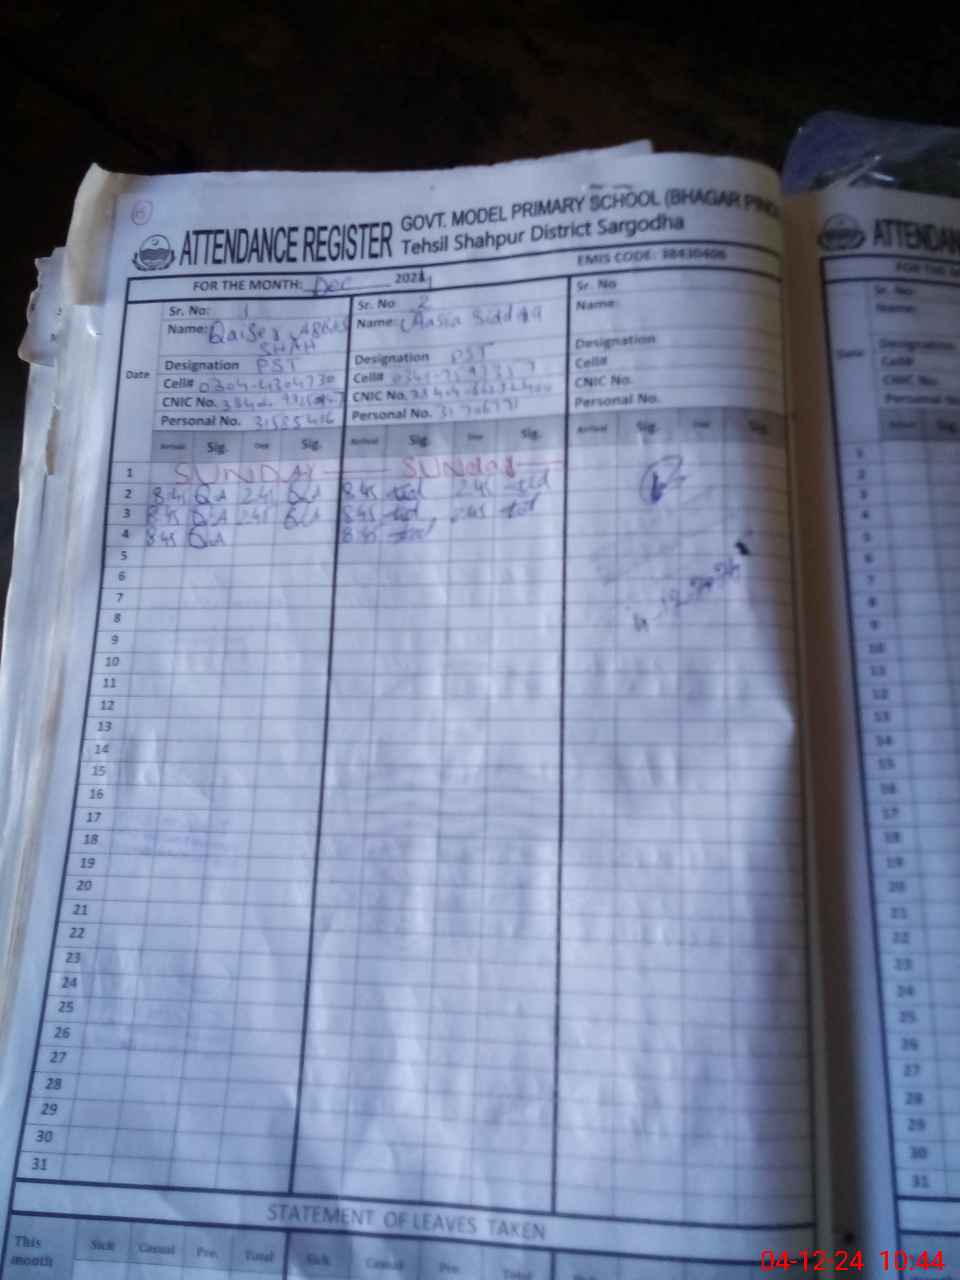 ATTENDANCE REGISTER
GOVT. MODEL PRIMARY SCHOOL (BHAGAR
Tehsil Shahpur District Sargodha
EMIS CODE: 38430406
FOR THE MONTH: Dec 2024
Sr. No: 1
Name: Qaiser Abbas
SHAH
Designation PST
Cell# 0304-4304730
CNIC No.
Personal No. 31585416
Sr. No 2
Name: Aasia Siddiqa
Designation PST
Cell#
CNIC No.
Personal No.
Sr. No
Name:
Designation
Cell#
CNIC No.
Personal No.
Date
Arrival Sig. Dep Sig. Arrival Sig. Dep Sig. Arrival Sig. Dep Sig.
1 SUNDAY SUNday
2 8:45 QA 2:45 QA 8:45 2:45
3 8:45 QA 2:45 QA 8:45 2:45
4 8:45 QA 8:45
5
6
7
8
9
10
11
12
13
14
15
16
17
18
19
20
21
22
23
24
25
26
27
28
29
30
31
STATEMENT OF LEAVES TAKEN
This month
Sick Casual Pre. Total Sick Casual Pre Total
ATTENDAN
FOR THE M
Sr. No:
Name:
Date
Designation
Cell#
CNIC No.
Personal No
1
2
3
4
5
6
7
8
9
10
11
12
13
14
15
16
17
18
19
20
21
22
23
24
25
26
27
28
29
30
31
04-12-24 10:44